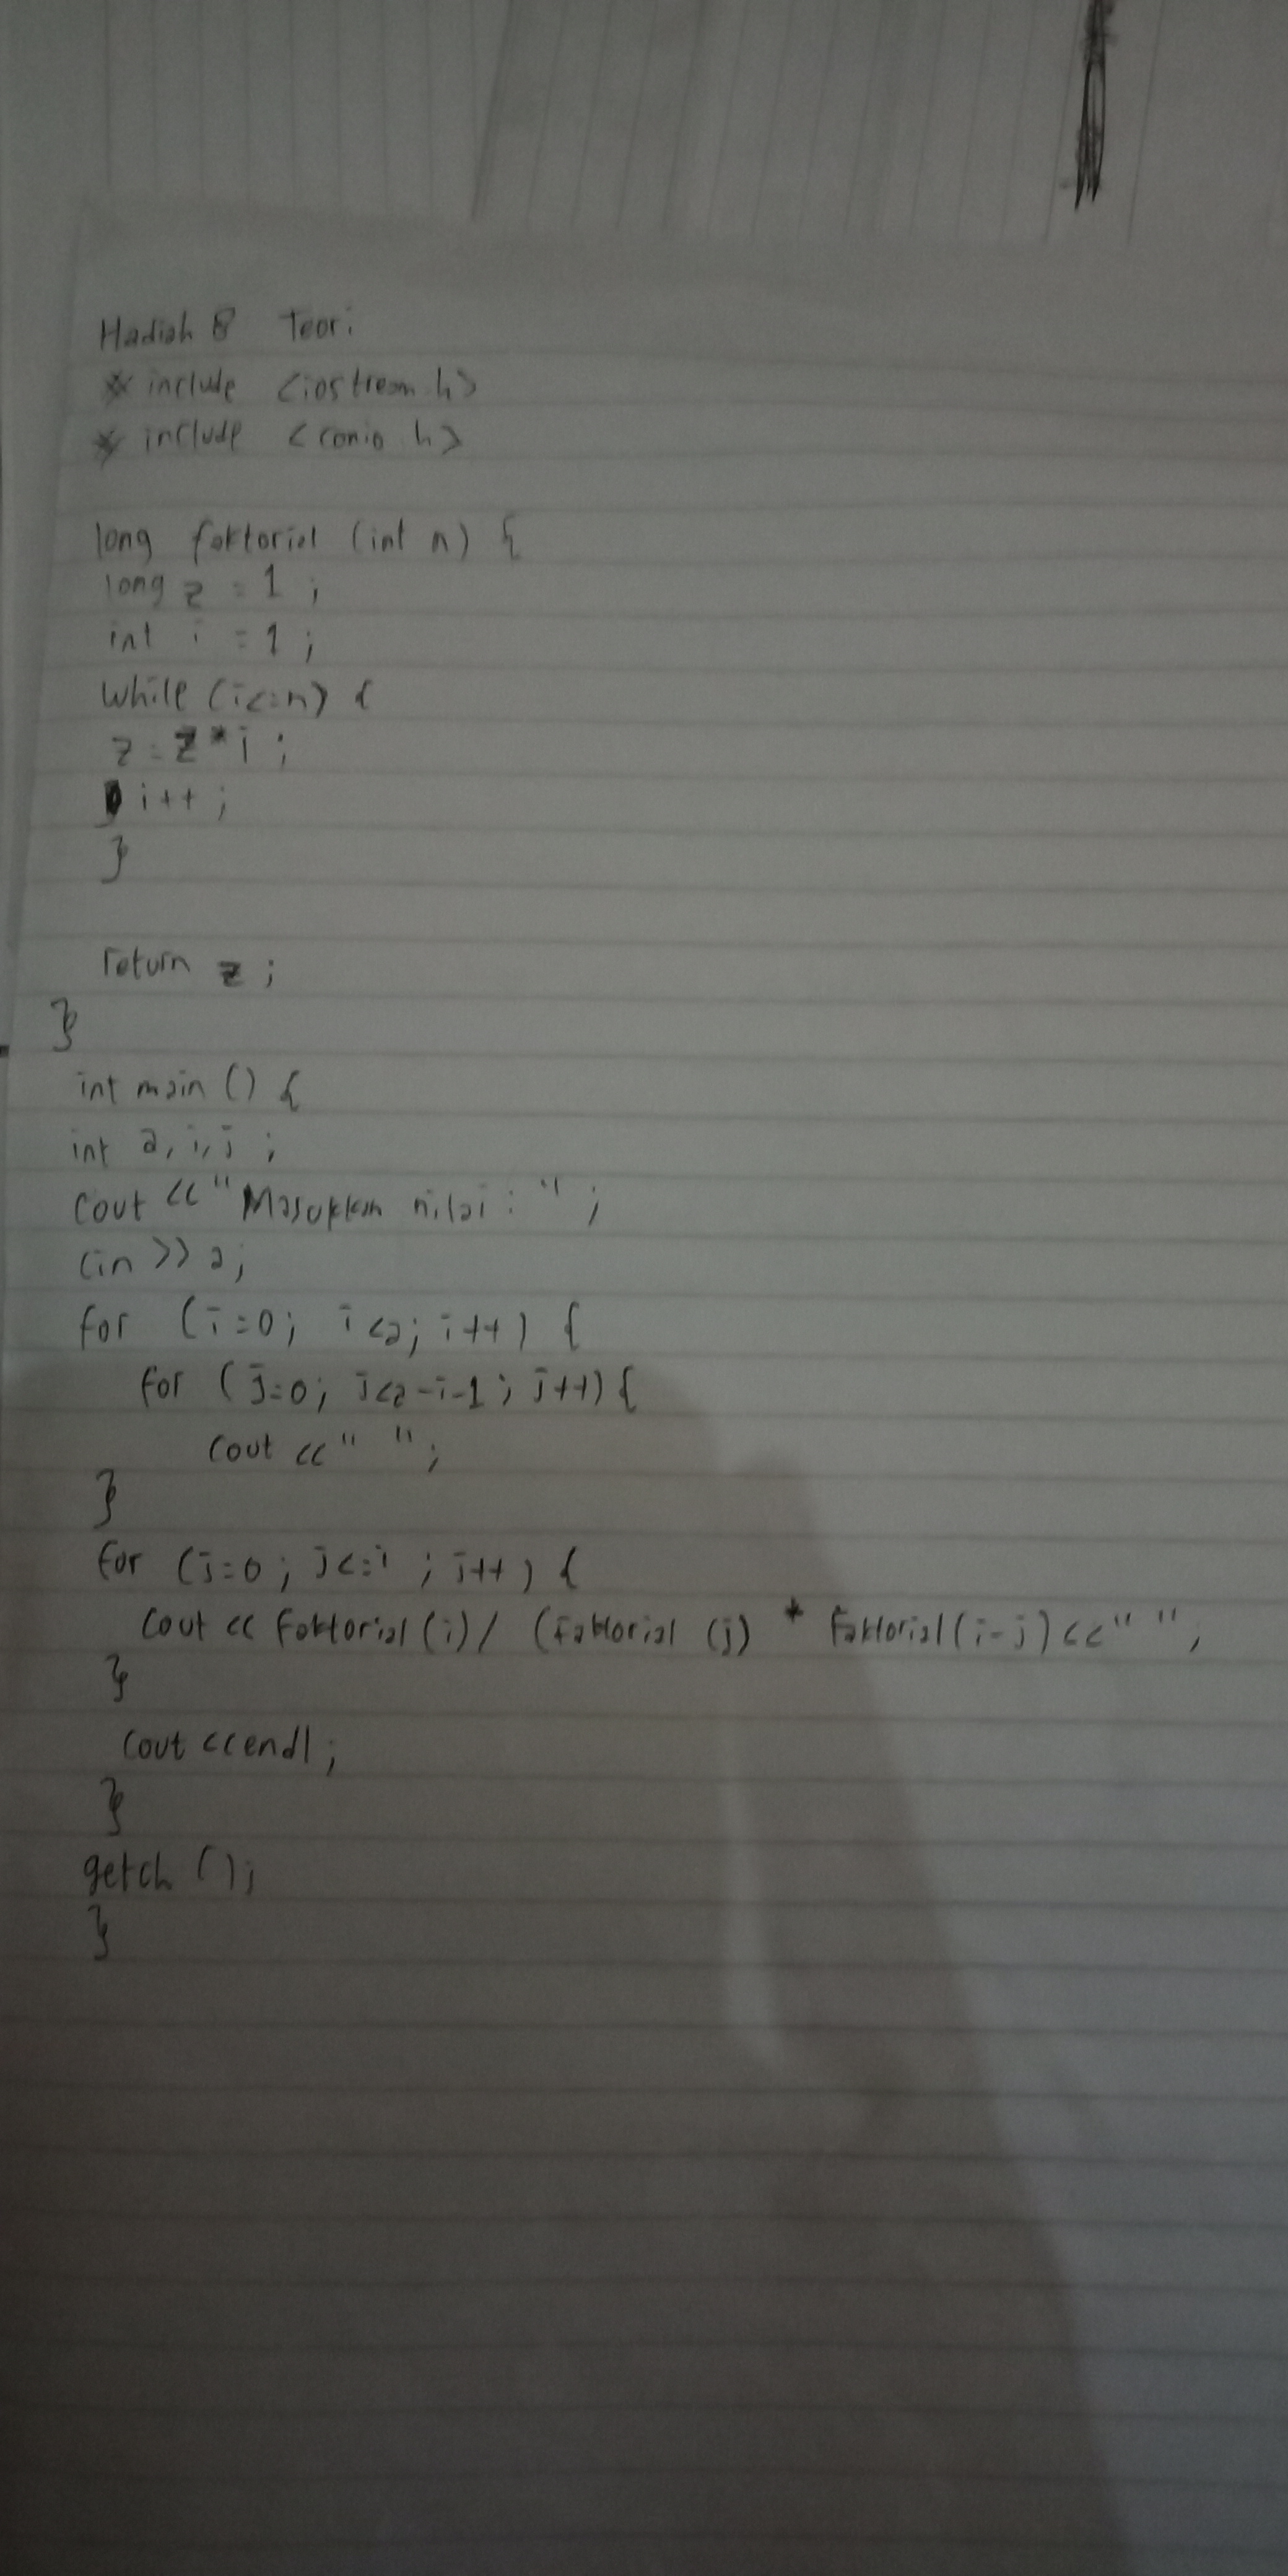 Hadiah 8 Teori
* include <iostream.h>
* include <conio h>
long faktorial (int n) {
long z = 1 ;
int i = 1 ;
while (i<=n) {
z = z * i ;
i++ ;
}
return z ;
}
int main () {
int a, i, j ;
Cout << " Masukkan nilai : " ;
Cin >> a;
for (i=0; i<a; i++) {
for (j=0; j<a-i-1; j++) {
Cout << " " ;
}
for (j=0 ; j<=i ; j++) {
Cout << faktorial (i) / (faktorial (j) * faktorial (i-j) << " " ;
}
Cout << endl ;
}
getch () ;
}